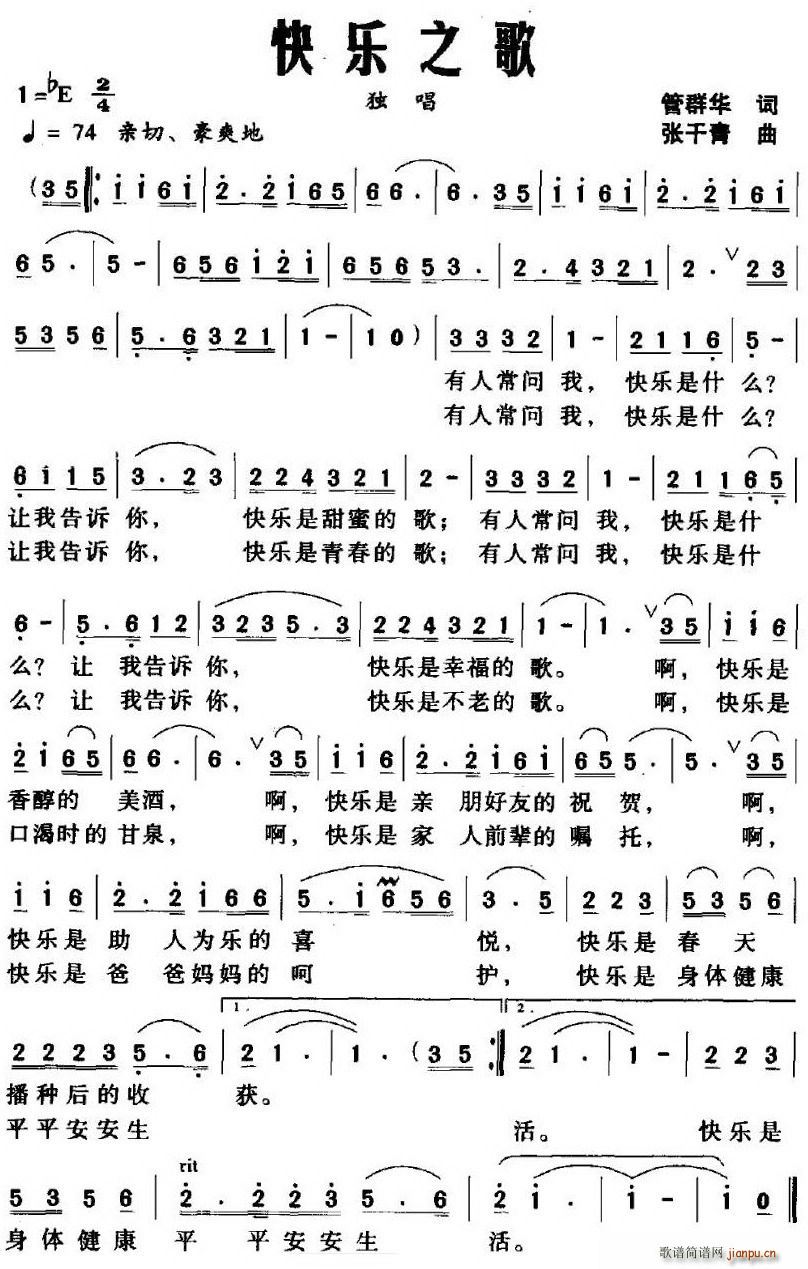 快乐之歌
1=♭E 2/4
独唱
管群华 词
♩= 74 亲切、豪爽地
张干青 曲
(35 ‖: i i6i | 2·2i65 | 66· | 6·35 | i i6i | 2·2i6i |
65· | 5- | 656i2i | 65653· | 2·4321 | 2·∨23 |
5356 | 5·6321 | 1- | 10) | 3332 | 1- | 2116 | 5- |
有人常问我，快乐是什么？
有人常问我，快乐是什么？
6i15 | 3·23 | 224321 | 2- | 3332 | 1- | 21165 |
让我告诉你，快乐是甜蜜的歌；有人常问我，快乐是什
让我告诉你，快乐是青春的歌；有人常问我，快乐是什
6- | 5·612 | 3235·3 | 224321 | 1- | 1·∨35 | i i6 |
么？让我告诉你，快乐是幸福的歌。啊，快乐是
么？让我告诉你，快乐是不老的歌。啊，快乐是
2i65 | 66· | 6·∨35 | i i6 | 2·2i6i | 655· | 5·∨35 |
香醇的美酒，啊，快乐是亲朋好友的祝贺，啊，
口渴时的甘泉，啊，快乐是家人前辈的嘱托，啊，
i i6 | 2·2i66 | 5·i656 | 3·5 | 223 | 5356 |
快乐是助人为乐的喜悦，快乐是春天
快乐是爸爸妈妈的呵护，快乐是身体健康
1. 2.
22235·6 | 21· | 1·(35 :‖ 21· | 1- | 223 |
播种后的收获。
平平安安生活。快乐是
rit
5356 | 2·2235·6 | 2i· | i- | i0 ‖
身体健康平平安安生活。
歌谱简谱网
jianpu.cn